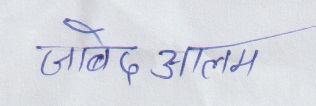 जाबेद आलम